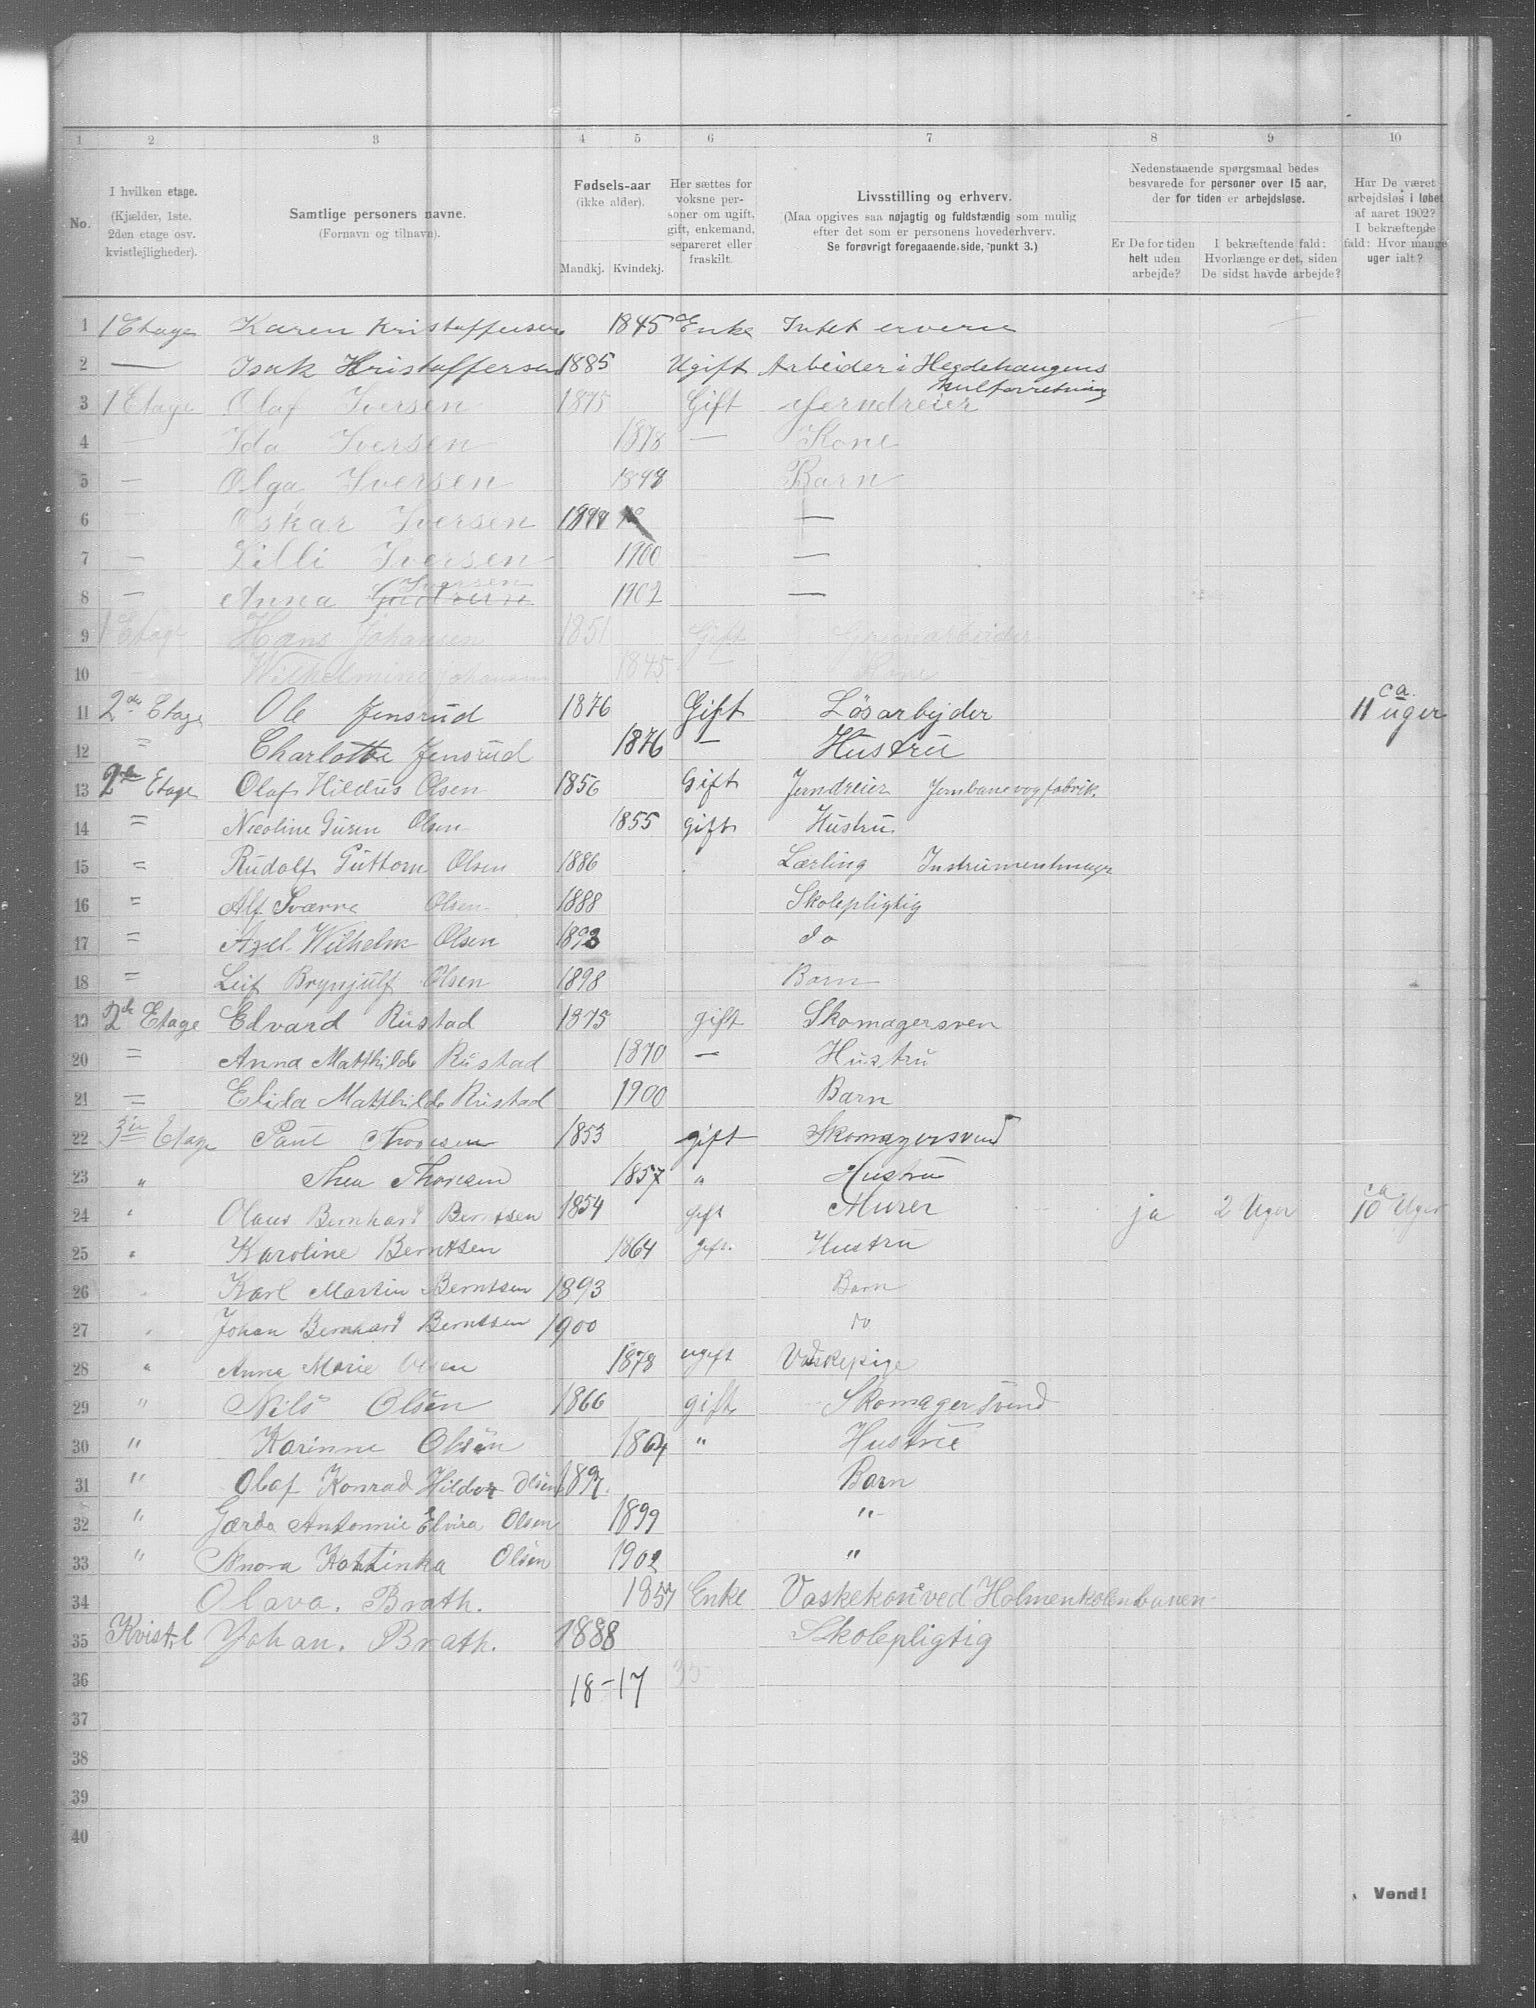 1 2 3 4 5 6 7 8 9 10
No.
I hvilken etage.
(Kjælder, 1ste.
2den etage osv.
kvistlejligheder).
Samtlige personers navne.
(Fornavn og tilnavn).
Fødsels-aar
(ikke alder).
Mandkj. Kvindekj.
Her sættes for
voksne per-
soner om ugift,
gift, enkemand,
separeret eller
fraskilt.
Livsstilling og erhverv.
(Maa opgives saa nøjagtig og fuldstændig som mulig
efter det som er personens hovederhverv.
Se forøvrigt foregaaende side, punkt 3.)
Nedenstaaende spørgsmaal bedes
besvarede for personer over 15 aar,
der for tiden er arbejdsløse.
Er De for tiden
helt uden
arbejde?
I bekræftende fald:
Hvorlænge er det, siden
De sidst havde arbejde?
Har De været
arbejdsløs i løbet
af aaret 1902?
I bekræftende
fald: Hvor mange
uger ialt?
1 1 Etage Karen Kristoffersen 1845 Enke Intet erverv
2 — Isak Kristoffersen 1885 Ugift Arbeider i Hegdehaugens
kulforretning
3 1 Etage Olaf Iversen 1875 Gift Jerndreier
4 — Ida Iversen 1878 — Kone
5 — Olga Iversen 1898 Barn
6 Oskar Iversen 1899 —
7 — Lilli Iversen 1900 —
Iversen
8 — Anna Gudrun 1902 —
9 1 Etage Hans Johansen 1851 Gift
10 — Wilhelmine Johansen 1845 — Kone
ca.
11 2den Etage Ole Jensrud 1876 Gift Løsarbejder 11 uger
12 " Charlotte Jensrud 1876 — Hustru
13 2de Etage Olaf Hildus Olsen 1856 Gift Jerndreier Jernbanevogfabrik.
14 " Nicoline Olsen 1855 Gift Hustru
15 " Rudolf Guttorm Olsen 1886 Lærling Instrumentmager
16 " Alf Sværre Olsen 1888 Skolepligtig
17 " Axel Wilhelm Olsen 1893 do
18 " Leif Brynjulf Olsen 1898 Barn
19 2de Etage Edvard Rustad 1875 gift Skomagersven
20 " Anna Matthilde Rustad 1870 — Hustru
21 " Elida Matthilde Rustad 1900 Barn
22 3die Etage Paul Thoresen 1853 gift Skomagersvend
23 " Thea Thoresen 1857 " Hustru
ca
24 " Olaus Bernhard Berntsen 1854 gift Murer ja 2 Uger 10 Uger
25 " Karoline Berntsen 1864 gift. Hustru
26 " Karl Martin Berntsen 1893 Barn
27 " Johan Bernhard Berntsen 1900 do
28 " Anna Marie Olsen 1878 ugift Vaskepige
29 " Nils Olsen 1866 gift Skomagersvend
30 " Karinne Olsen 1864 " Hustru
31 " Olaf Konrad Hildor Olsen 1897. Barn
32 " Gærda Antonnie Elvira Olsen 1899 "
33 " Annora Kattinka Olsen 1902 "
34 Olava. Brath. 1857 Enke Vaskekone ved Holmenkolenbanen
35 Kvist.l Johan. Brath. 1888 Skolepligtig
36 18-17 35
37
38
39
40
Vend!